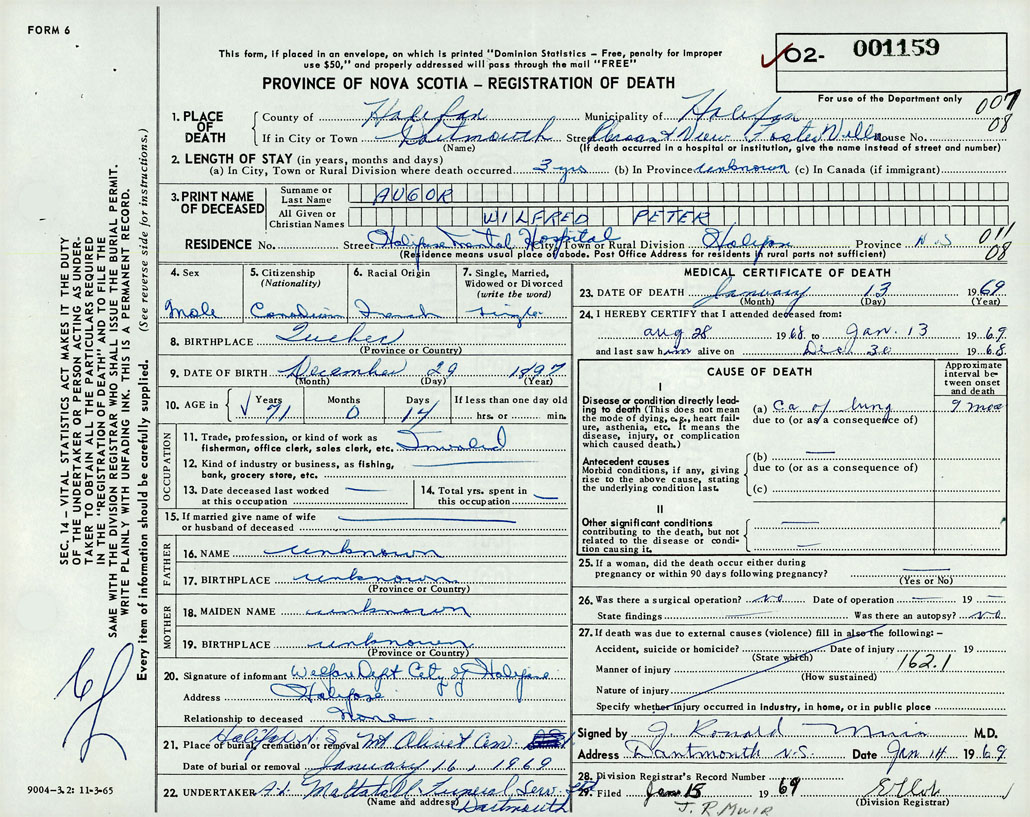 FORM 6
This form, if placed in an envelope, on which is printed "Dominion Statistics – Free, penalty for improper
use $50," and properly addressed will pass through the mail "FREE"
PROVINCE OF NOVA SCOTIA – REGISTRATION OF DEATH
02- 001159
For use of the Department only
007
08
1. PLACE OF DEATH
County of Halifax Municipality of Halifax
If in City or Town Dartmouth Street Pleasant View Foster Villa House No.
(Name) (If death occurred in a hospital or institution, give the name instead of street and number)
2. LENGTH OF STAY (in years, months and days)
(a) In City, Town or Rural Division where death occurred 3 yrs (b) In Province unknown (c) In Canada (if immigrant)
3. PRINT NAME OF DECEASED
Surname or Last Name AUGOR
All Given or Christian Names WILFRED PETER
RESIDENCE No. Street Halifax Mental Hospital City, Town or Rural Division Halifax Province N S
011
08
(Residence means usual place of abode. Post Office Address for residents in rural parts not sufficient)
4. Sex Male
5. Citizenship (Nationality) Canadian
6. Racial Origin French
7. Single, Married, Widowed or Divorced (write the word) single
8. BIRTHPLACE Quebec
(Province or Country)
9. DATE OF BIRTH December 29 1897
(Month) (Day) (Year)
10. AGE in Years 71 Months 0 Days 14 If less than one day old hrs. or min.
OCCUPATION
11. Trade, profession, or kind of work as fisherman, office clerk, sales clerk, etc. Invalid
12. Kind of industry or business, as fishing, bank, grocery store, etc.
13. Date deceased last worked at this occupation
14. Total yrs. spent in this occupation
15. If married give name of wife or husband of deceased
FATHER
16. NAME unknown
17. BIRTHPLACE unknown
(Province or Country)
MOTHER
18. MAIDEN NAME unknown
19. BIRTHPLACE unknown
(Province or Country)
20. Signature of informant Welfare Dept City of Halifax
Address Halifax
Relationship to deceased None
21. Place of burial, cremation or removal Halifax N.S. Mt Olivet Cem
Date of burial or removal January 16, 1969
22. UNDERTAKER Mattatall Funeral Serv
(Name and address) Dartmouth
MEDICAL CERTIFICATE OF DEATH
23. DATE OF DEATH January 13 1969
(Month) (Day) (Year)
24. I HEREBY CERTIFY that I attended deceased from:
Aug 28 1968 to Jan. 13 1969
and last saw him alive on Dec 30 1968
CAUSE OF DEATH
Approximate interval between onset and death
I
Disease or condition directly leading to death (This does not mean the mode of dying, e.g., heart failure, asthenia, etc. It means the disease, injury, or complication which caused death.)
(a) Ca of lung 9 mos
due to (or as a consequence of)
Antecedent causes
Morbid conditions, if any, giving rise to the above cause, stating the underlying condition last.
(b)
due to (or as a consequence of)
(c)
II
Other significant conditions contributing to the death, but not related to the disease or condition causing it.
25. If a woman, did the death occur either during pregnancy or within 90 days following pregnancy?
(Yes or No)
26. Was there a surgical operation? no Date of operation 19
State findings Was there an autopsy? no
27. If death was due to external causes (violence) fill in also the following: –
Accident, suicide or homicide? Date of injury 19
(State which)
Manner of injury 162.1
(How sustained)
Nature of injury
Specify whether injury occurred in Industry, in home, or in public place
Signed by J Ronald Muir M.D.
Address Dartmouth N.S. Date Jan 14 1969
28. Division Registrar's Record Number
29. Filed Jan 15 1969
(Division Registrar)
J. R. Muir
SEC. 14 – VITAL STATISTICS ACT MAKES IT THE DUTY
OF THE UNDERTAKER OR PERSON ACTING AS UNDER-
TAKER TO OBTAIN ALL THE PARTICULARS REQUIRED
IN THE "REGISTRATION OF DEATH" AND TO FILE THE
SAME WITH THE DIVISION REGISTRAR WHO SHALL ISSUE THE BURIAL PERMIT.
WRITE PLAINLY WITH UNFADING INK. THIS IS A PERMANENT RECORD.
Every item of information should be carefully supplied. (See reverse side for instructions.)
9004-3.2: 11-3-65